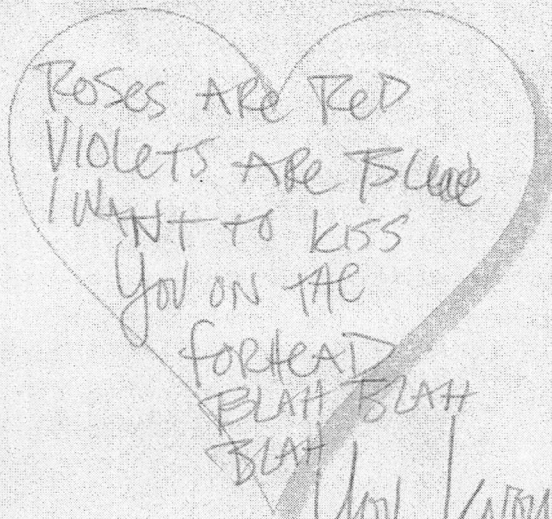 Roses ARe ReD
VIOleTS ARe Blue
I WANT TO KISS
You ON THe
forHeAD
BLAH BLAH
BLAH
You Know